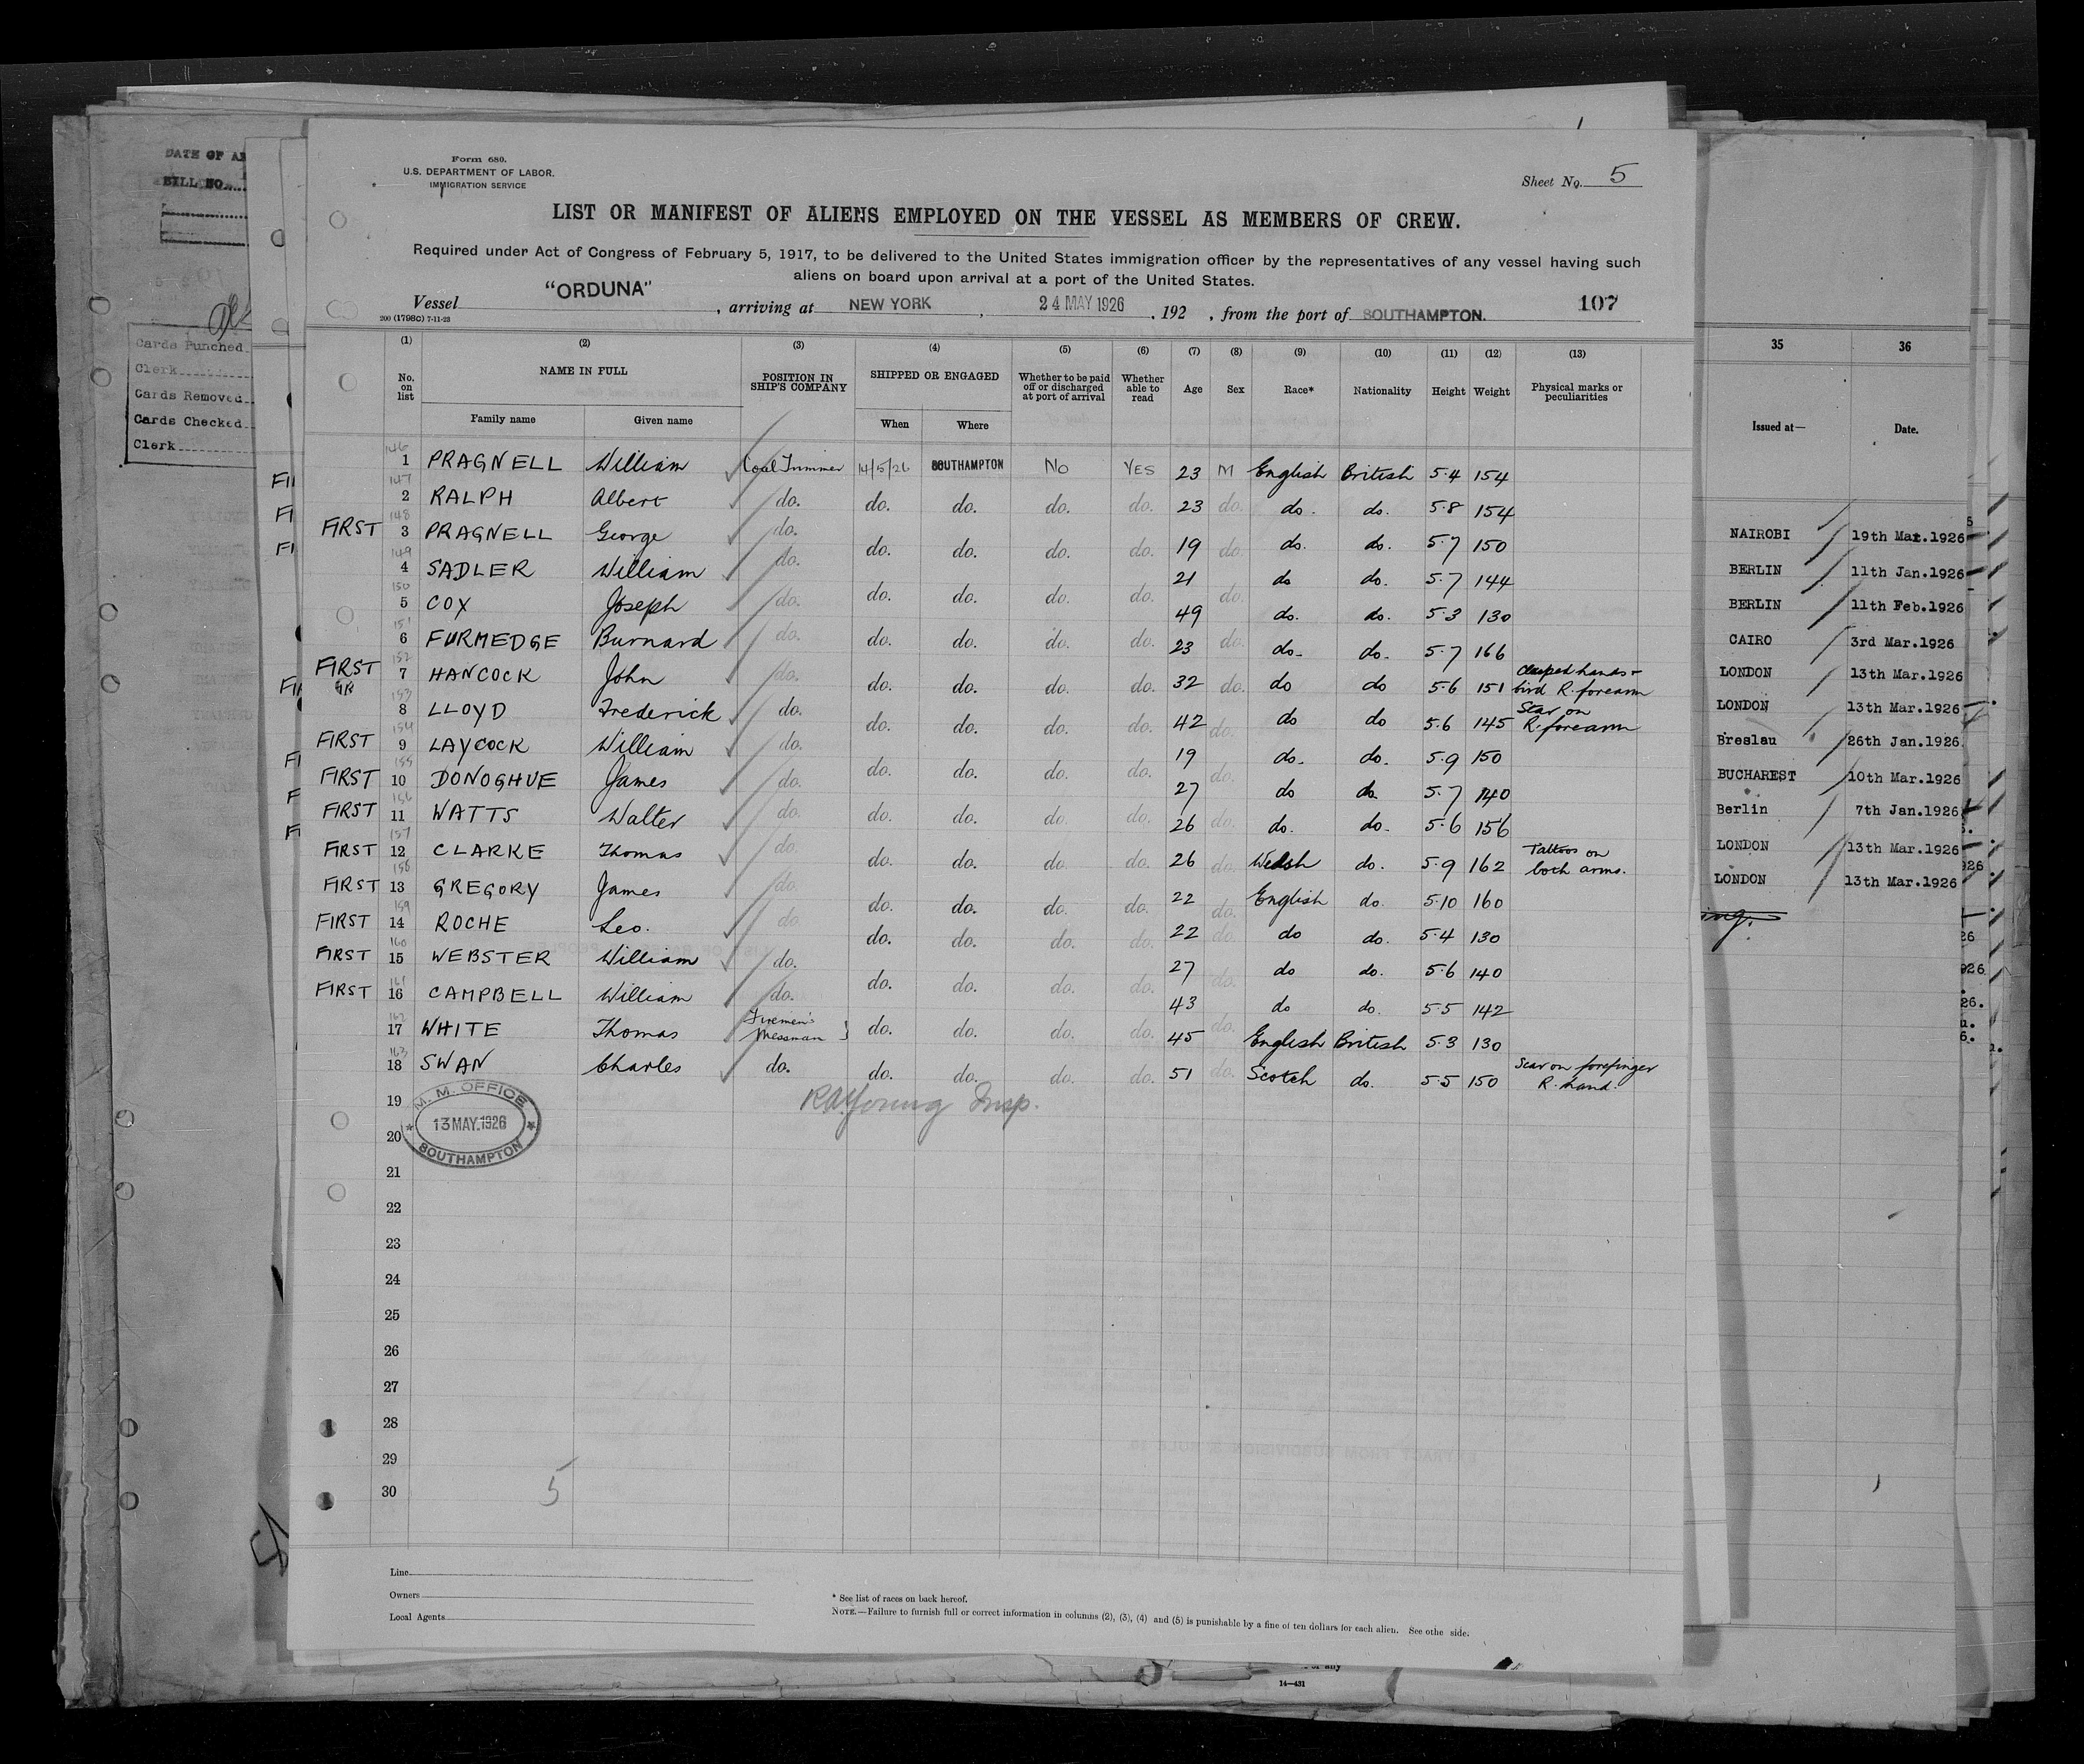 Form 680.
U.S. DEPARTMENT OF LABOR.
IMMIGRATION SERVICE
Sheet No. 5
LIST OR MANIFEST OF ALIENS EMPLOYED ON THE VESSEL AS MEMBERS OF CREW.
Required under Act of Congress of February 5, 1917, to be delivered to the United States immigration officer by the representatives of any vessel having such
aliens on board upon arrival at a port of the United States.
Vessel "ORDUNA", arriving at NEW YORK, 24 MAY 1926, 192 , from the port of SOUTHAMPTON. 107
200 (1798C) 7-11-23
(1) (2) (3) (4) (5) (6) (7) (8) (9) (10) (11) (12) (13)
No. on list NAME IN FULL POSITION IN SHIP'S COMPANY SHIPPED OR ENGAGED Whether to be paid off or discharged at port of arrival Whether able to read Age Sex Race* Nationality Height Weight Physical marks or peculiarities
Family name Given name When Where
146 1 PRAGNELL William Coal Trimmer 14/5/26 SOUTHAMPTON NO YES 23 M English British 5.4 154
147 2 RALPH Albert do. do. do. do. do. 23 do. do. do. 5.8 154
FIRST 148 3 PRAGNELL George do. do. do. do. do. 19 do. do. do. 5.7 150
149 4 SADLER William do. 21 do do. 5.7 144
150 5 COX Joseph do. do. do. do. do. 49 do. do. do. 5.3 130
151 6 FURMEDGE Burnard do. do. do. do. do. 23 do. do. do. 5.7 166
FIRST 152 7 HANCOCK John do. do. do. do. do. 32 do. do do 5.6 151 Clasped hands + bird R. forearm
153 8 LLOYD Frederick do. do. do. do. do. 42 do. do do 5.6 145 Scar on R. forearm
FIRST 154 9 LAYCOCK William do. 19 do. do. 5.9 150
FIRST 155 10 DONOGHUE James do. do. do. do. do. 27 do. do do 5.7 140
FIRST 156 11 WATTS Walter do. do. do. do. do. 26 do. do. do. 5.6 156
FIRST 157 12 CLARKE Thomas do. do. do. do. do. 26 do. Welsh do. 5.9 162 Tattoos on both arms.
FIRST 158 13 GREGORY James do. do. do. do. do. 22 do. English do. 5.10 160
FIRST 159 14 ROCHE Leo. do do. do. do. do. 22 do. do do. 5.4 130
FIRST 160 15 WEBSTER William do. 27 do. do do. 5.6 140
FIRST 161 16 CAMPBELL William do. do. do. do. do. 43 do do. 5.5 142
162 17 WHITE Thomas Firemen's Messman do. do. do. do. 45 do. English British 5.3 130
163 18 SWAN Charles do. do. do. do. do. 51 do. Scotch do. 5.5 150 Scar on forefinger R. hand.
19
20
21
22
23
24
25
26
27
28
29
30
M. M. OFFICE
13 MAY.1926
SOUTHAMPTON
R A Young Insp.
5
Line
Owners
Local Agents
* See list of races on back hereof.
NOTE.—Failure to furnish full or correct information in columns (2), (3), (4) and (5) is punishable by a fine of ten dollars for each alien. See othe side.
DATE OF
BILL NO.
Cards Punched
Clerk
Cards Removed
Cards Checked
Clerk
35 36
Issued at— Date.
NAIROBI 19th Mar.1926
BERLIN 11th Jan.1926
BERLIN 11th Feb.1926
CAIRO 3rd Mar.1926
LONDON 13th Mar.1926
LONDON 13th Mar.1926
Breslau 26th Jan.1926.
BUCHAREST 10th Mar.1926
Berlin 7th Jan.1926
LONDON 13th Mar.1926
LONDON 13th Mar.1926
14—431